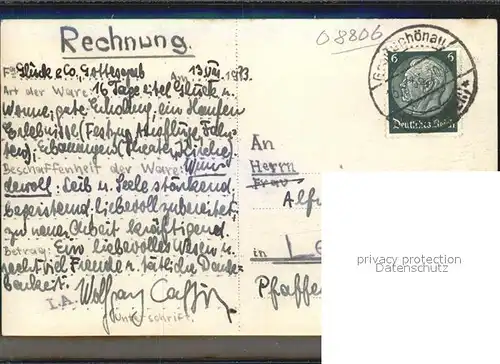 Rechnung.
08806
Großschönau
6 6
Deutsches Reich
Fa. Glück & Co, Gottesgab Am 13.VII. 1933.
Art der Ware: 16 Tage eitel Glück u.
Wonne, gute Erholung, ein Haufen
Erlebnisse (Festzug, Ausflüge,
Erbauungen (Theater, Kirche)
Beschaffenheit der Ware: Wun-
dervoll: Leib u. Seele stärkend
begeisternd liebevoll zubereitet
zu neuer Arbeit kräftigend.
Betrag: Ein liebevolles Wesen u.
recht viel Freude u. tätliche Dank-
barkeit.
I.A. Wolfgang
Unterschrift.
An
Herrn
Frau
Alf
in
Pfaffe
privacy protection
Datenschutz